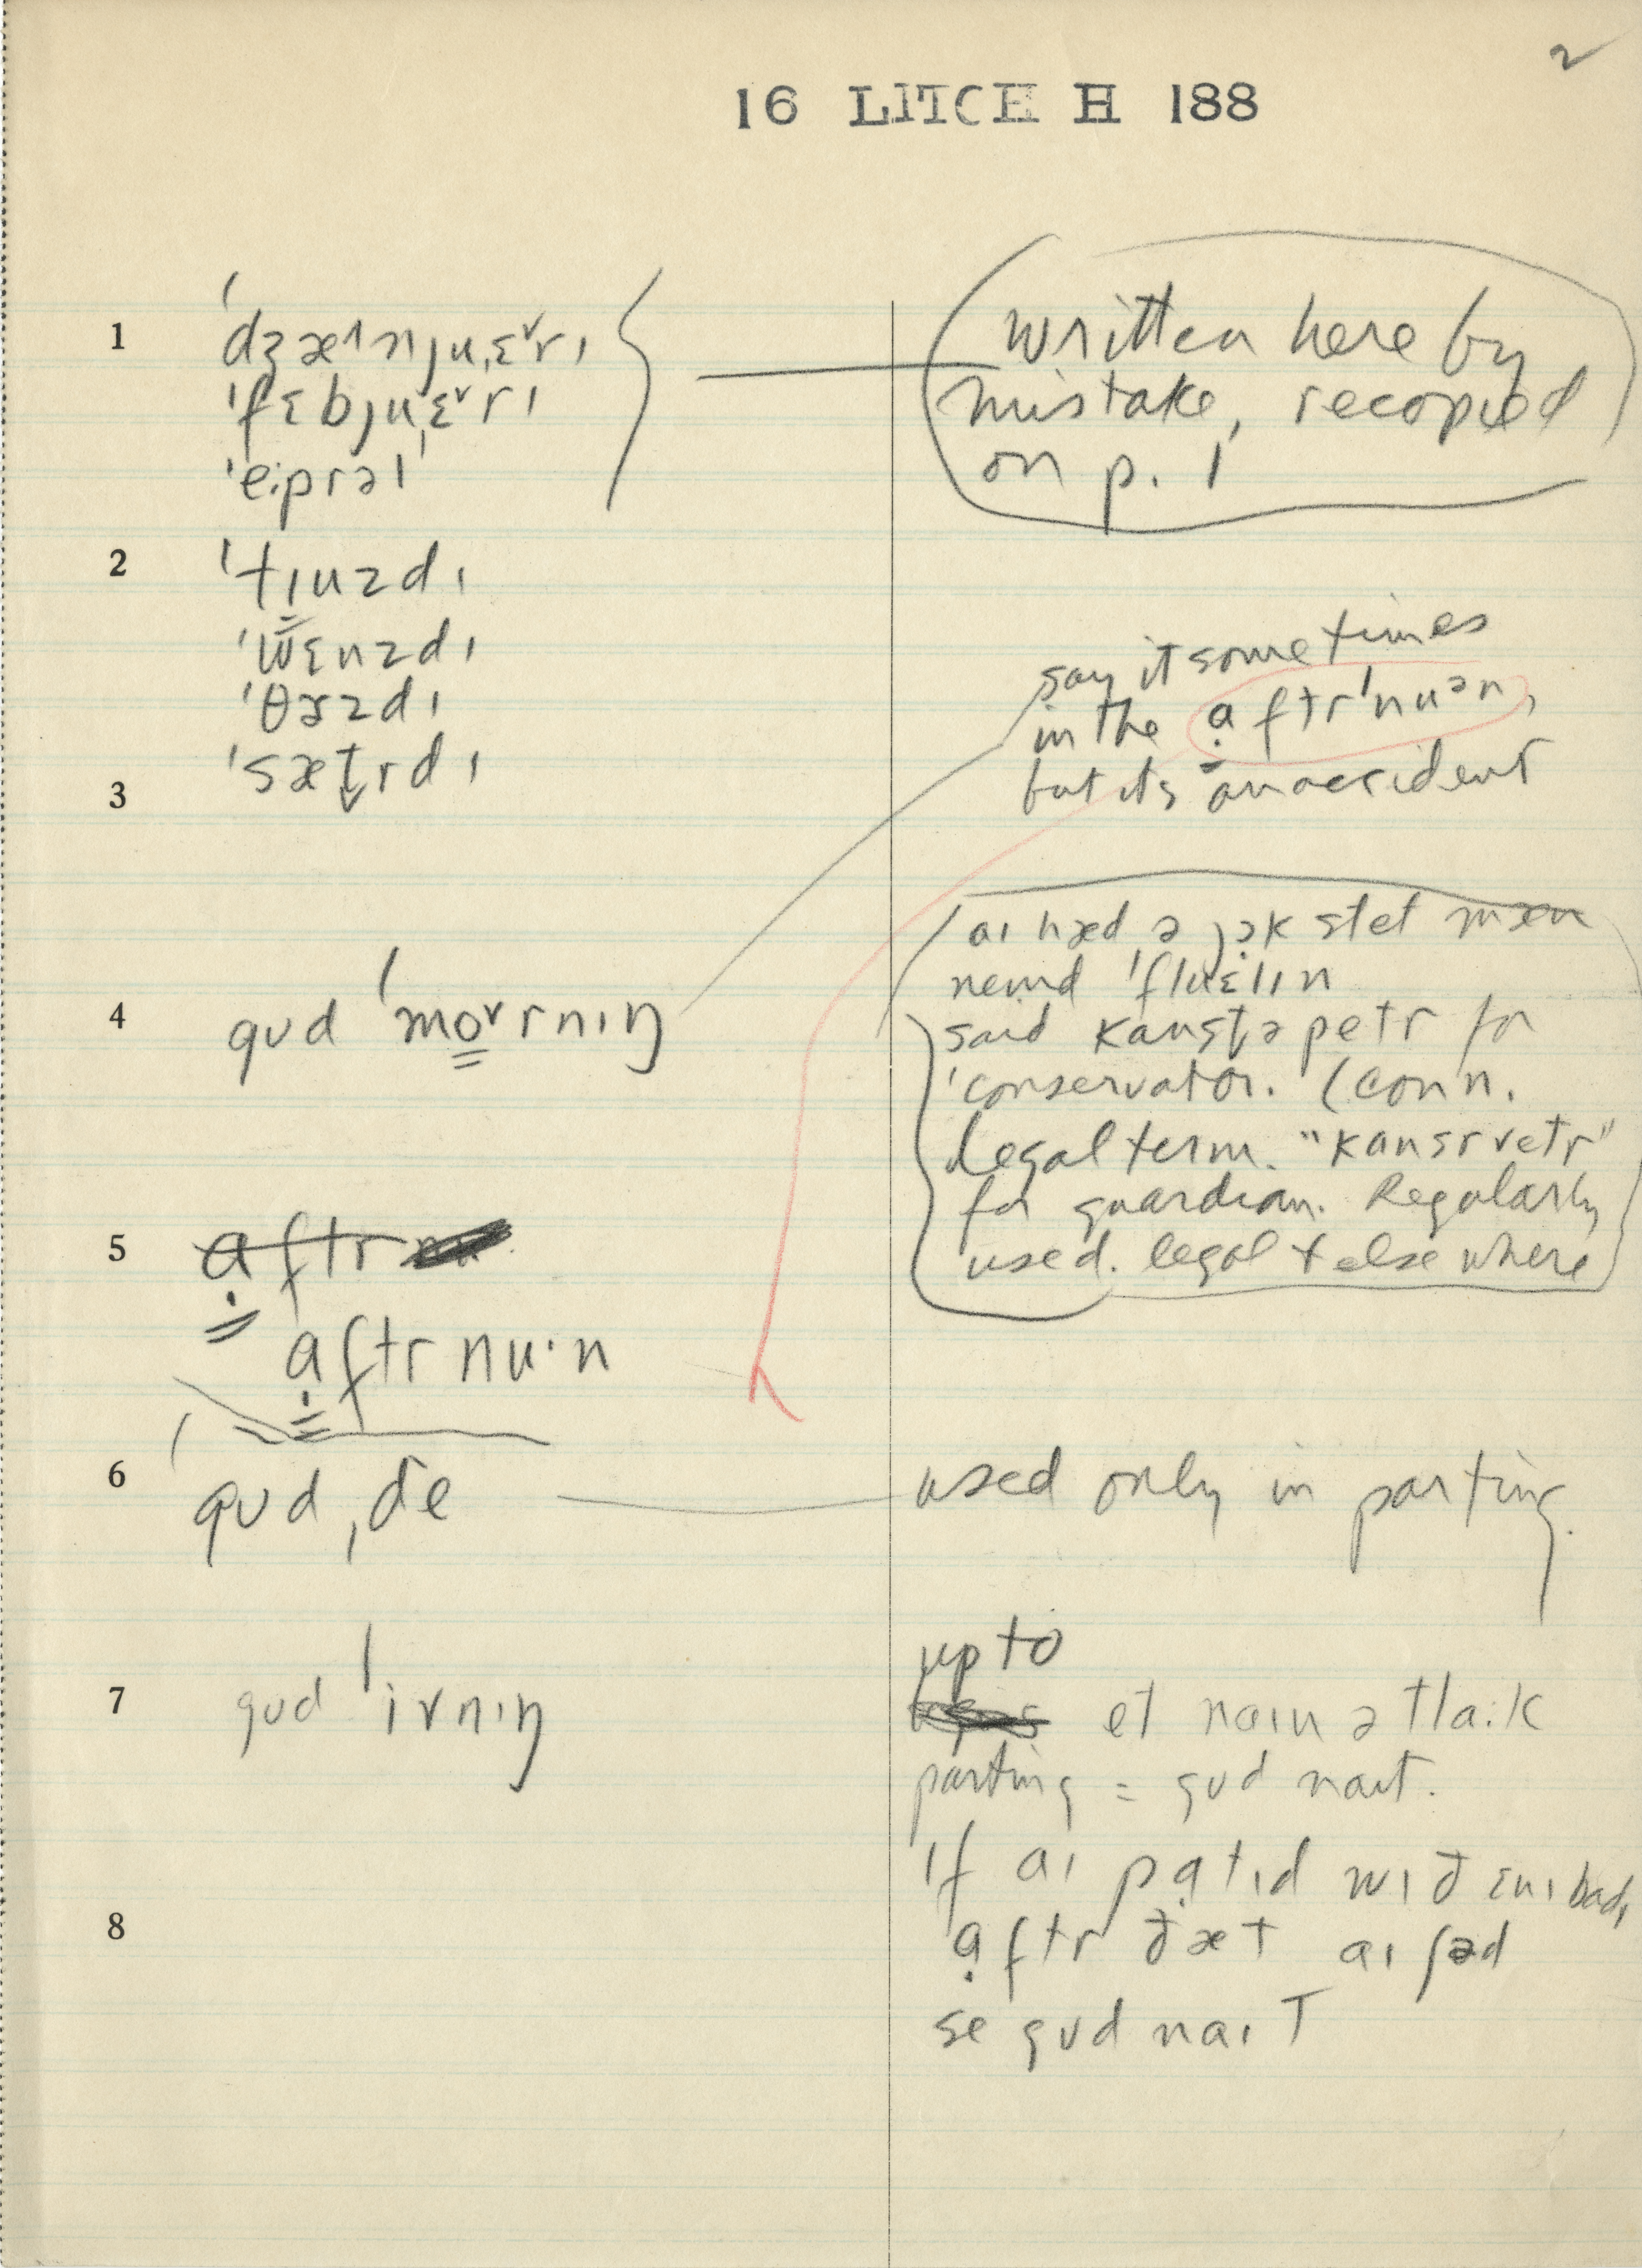 2
16 LITCH H 188
1 ˈdʒæ˄nju,ɛ˅rɪ
ˈfɛbju,ɛ˅rɪ
ˈe:prəl
written here by
mistake, recopied
on p. 1
2 ˈtɪuzdɪ
ˈwɛnzdɪ
ˈθɜzdɪ
ˈsæt̬rdɪ
3
say it sometimes
in the ạftrˈnuᵊn,
but its an accident
4 gud ˈmo˅rnɪŋ
aɪ hæd ə jəк stet mæn
nemd ˈfluɛlɪn
said kanstəpetr for
'conservator. (Conn.
Legal term. "kansrvetr"
for guardian. Regularly
used. legal + elsewhere
5 ạftr
ạftrnu·n
6 gud ,de
used only in parting.
7 gud ˈivnɪŋ
up to
et naɪn ə klak
parting = gud naɪt.
If aɪ pạtɪd wɪð ɛnɪbadɪ
8 ạftr ðæt aɪ ʃəd
se gud naɪt